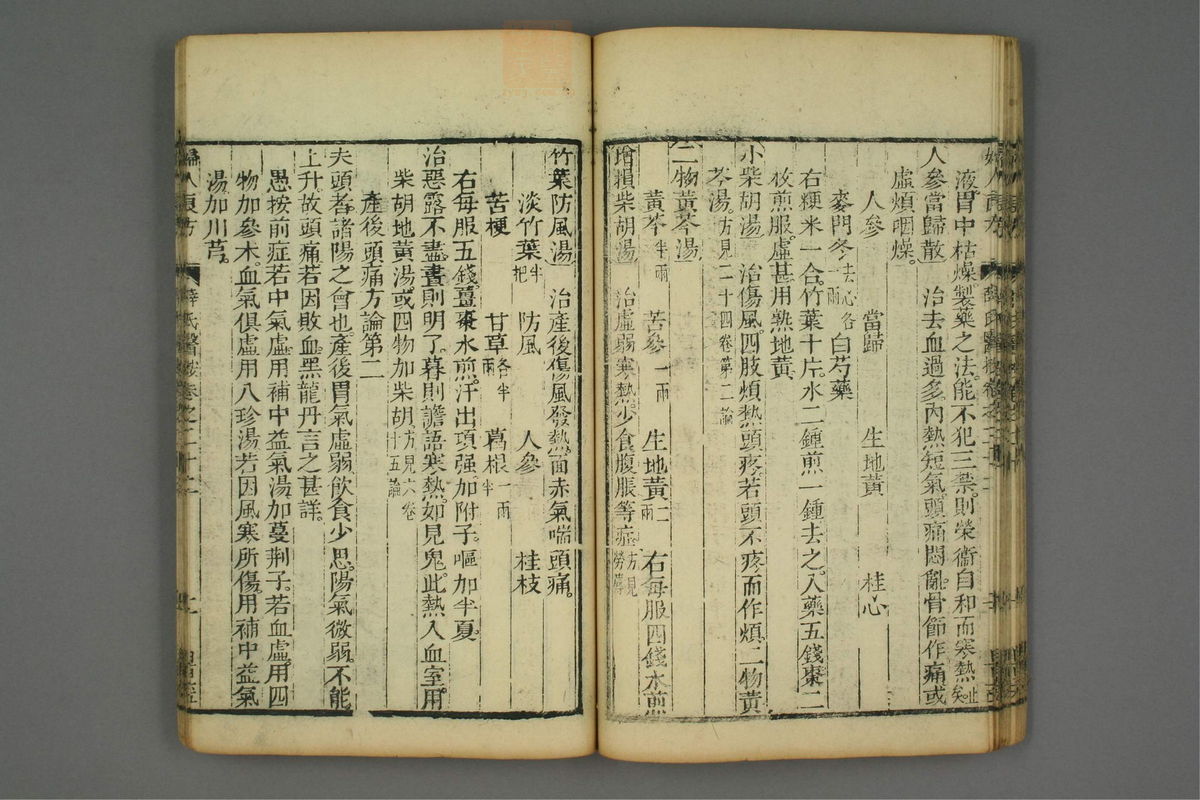 液胃中枯燥製藥之法能不犯三禁則榮衞自和而寒熱止矣。
人參當歸散　治去血過多內熱短氣頭痛悶亂骨節作痛或
虛煩咽燥。
人參　當歸　生地黃　桂心
麥門冬去心各一兩　白芍藥
右粳米一合。竹葉十片。水二鍾煎一鍾去之。入藥五錢棗二
枚煎服。虛甚用熟地黃
小柴胡湯　治傷風四肢煩熱頭疼。若頭不疼而作煩二物黃
芩湯。方見二十四卷第二論
二物黃芩湯
黃芩半兩　苦參一兩　生地黃二兩　右每服四錢水煎
增損柴胡湯　治虛弱寒熱。少食腹脹等症方見勞瘵
竹葉防風湯　治產後傷風發熱。面赤氣喘頭痛。
淡竹葉半把　防風　人參　桂枝
苦梗　甘草各半兩　葛根一兩半
右每服五錢。薑棗水煎。汗出項强加附子。嘔加半夏。
治惡露不盡。晝則明了。暮則譫語寒熱。如見鬼。此熱入血室。用
柴胡地黃湯。或四物加柴胡。方見六卷十五論
產後頭痛方論第二
夫頭者諸陽之會也。產後胃氣虛弱。飲食少思。陽氣微弱。不能
上升。故頭痛若因敗血。黑龍丹言之甚詳。
愚按前症若中氣虛。用補中益氣湯加蔓荆子。若血虛。用四
物加參朮。血氣俱虛用八珍湯若因風寒所傷。用補中益氣
湯加川芎。
婦人良方　薛氏醫按卷之二十二